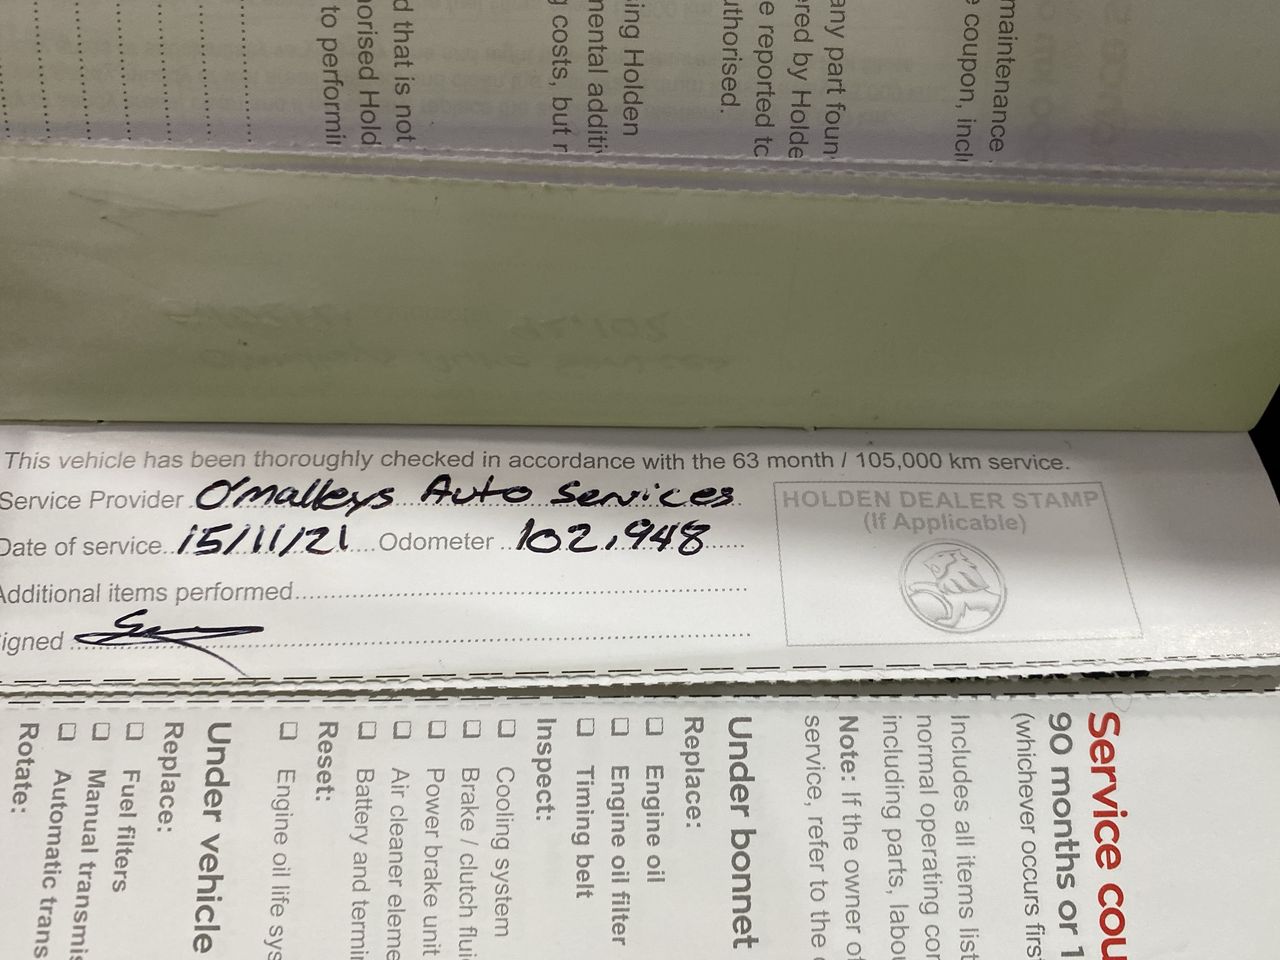 maintenance
e coupon, incl
any part foun
ered by Holde
e reported to
uthorised.
ing Holden
mental additi
g costs, but r
d that is not
norised Hold
to performi
This vehicle has been thoroughly checked in accordance with the 63 month / 105,000 km service.
Service Provider O'malleys Auto Services
Date of service 15/11/21 Odometer 102,948
Additional items performed
igned
HOLDEN DEALER STAMP
(If Applicable)
Service cou
90 months or 1
(whichever occurs firs
Includes all items list
normal operating con
including parts, labou
Note: If the owner of
service, refer to the
Under bonnet
Replace:
☐ Engine oil
☐ Engine oil filter
☐ Timing belt
Inspect:
☐ Cooling system
☐ Brake / clutch flui
☐ Power brake unit
☐ Air cleaner eleme
☐ Battery and termi
Reset:
☐ Engine oil life sys
Under vehicle
Replace:
☐ Fuel filters
☐ Manual transmis
☐ Automatic trans
Rotate: